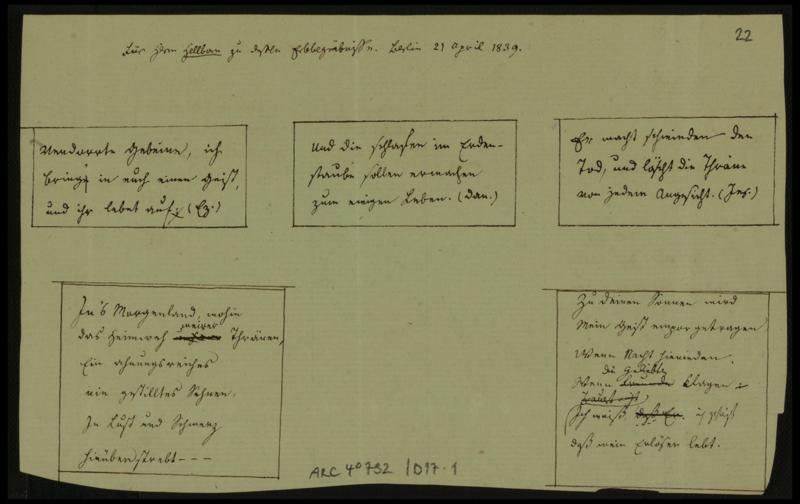 22
Für Herrn Hellborn zu dessen Erbbegräbnisse. Berlin 21 April 1839.
Verdorrte Gebeine, ich
bringe in euch einen Geist,
und ihr lebet auf; (Ez.)
Und die schlafen im Erden-
staube sollen erwachen
zum ewigen Leben. (Dan.)
Er macht schwinden den
Tod, und löscht die Thräne
von jedem Angesicht. (Jes.)
In's Morgenland, wohin
das Heimweh meiner Thränen,
Ein ahnungsreiches
nie gestilltes Sehnen
In Lust und Schmerz
hinüberstrebt - - -
Zu deinen Sonnen wird
Mein Geist emporgetragen
Wenn Nacht hienieden,
die Geliebte
Wenn Freunde klagen:
Ich weiß
daß mein Erlöser lebt.
ARC 4° 792 / D17·1